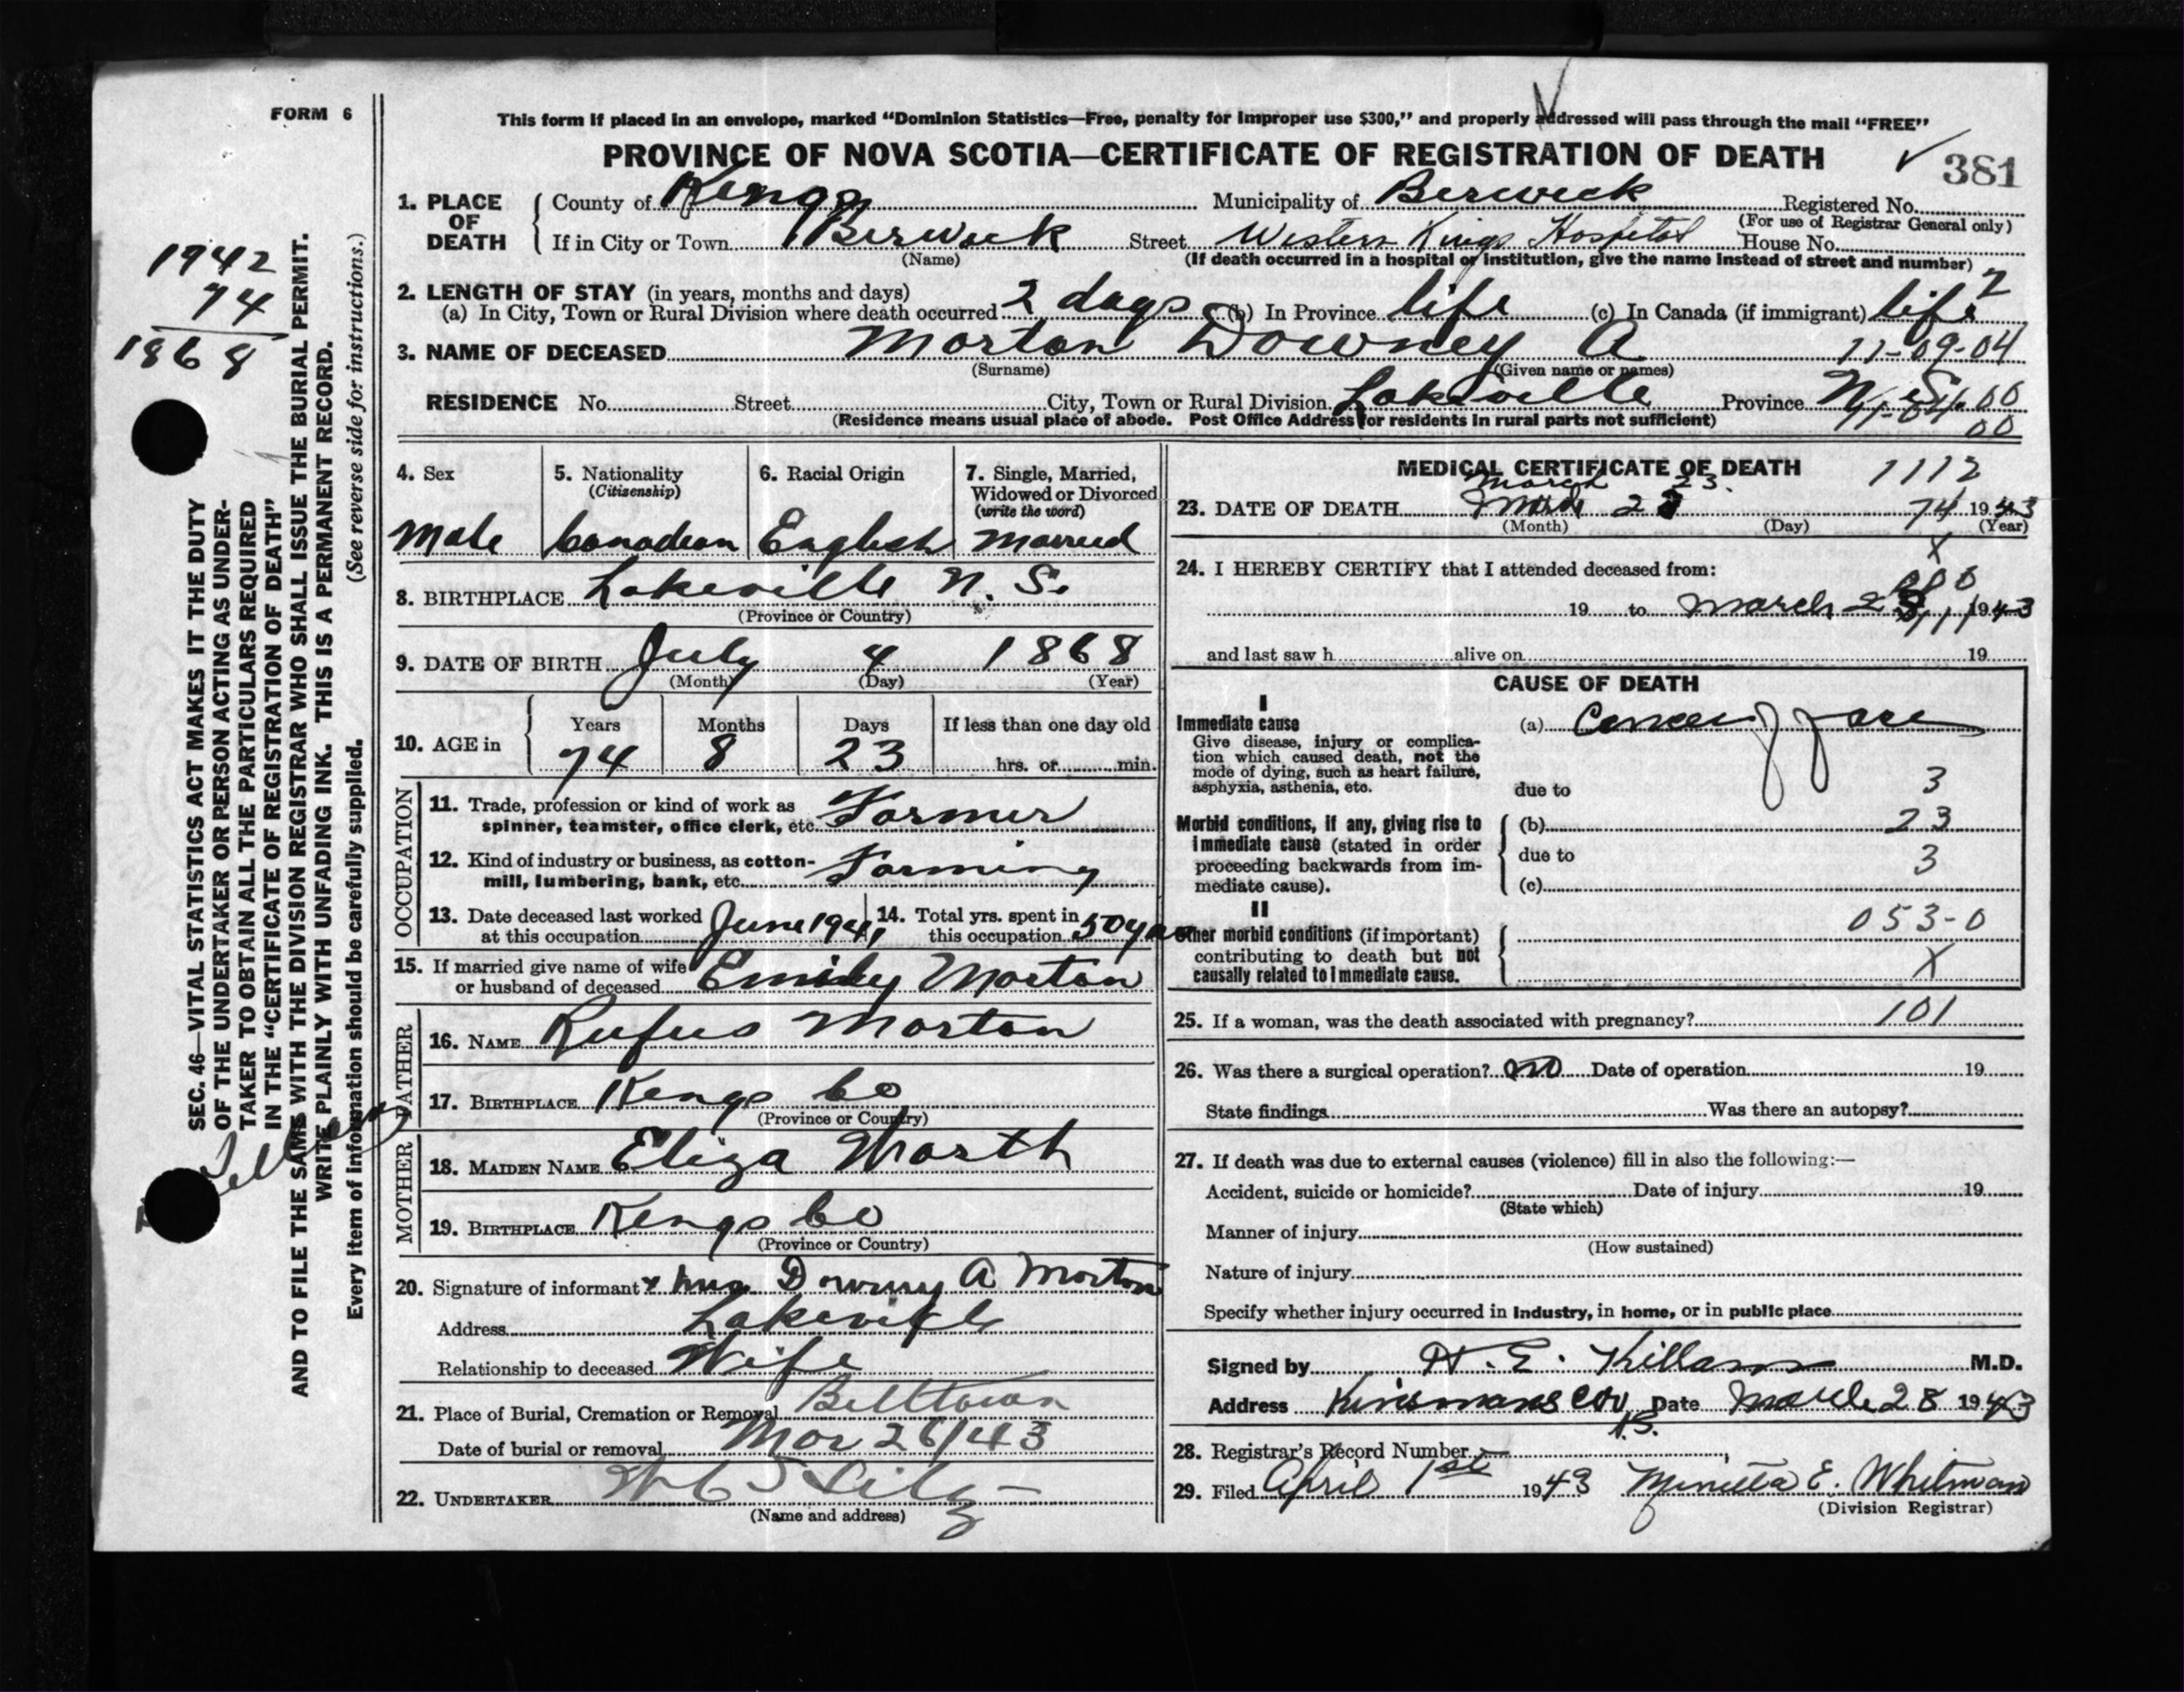 FORM 6
This form if placed in an envelope, marked “Dominion Statistics—Free, penalty for improper use $300,” and properly addressed will pass through the mail “FREE”
PROVINCE OF NOVA SCOTIA—CERTIFICATE OF REGISTRATION OF DEATH
381
1. PLACE OF DEATH
County of Kings Municipality of Berwick Registered No.
(For use of Registrar General only)
If in City or Town Berwick Street Western Kings Hospital House No.
(Name) (If death occurred in a hospital or institution, give the name instead of street and number)
2. LENGTH OF STAY (in years, months and days)
(a) In City, Town or Rural Division where death occurred 2 days (b) In Province life (c) In Canada (if immigrant) life 2
3. NAME OF DECEASED Morton Downey A 11-09-04
(Surname) (Given name or names)
RESIDENCE No. Street City, Town or Rural Division Lakeville Province N.S.
00
(Residence means usual place of abode. Post Office Address for residents in rural parts not sufficient)
4. Sex
Male
5. Nationality
(Citizenship)
Canadian
6. Racial Origin
English
7. Single, Married,
Widowed or Divorced
(write the word)
Married
8. BIRTHPLACE Lakeville N. S.
(Province or Country)
9. DATE OF BIRTH July 4 1868
(Month) (Day) (Year)
10. AGE in Years Months Days If less than one day old
74 8 23 hrs. or min.
OCCUPATION
11. Trade, profession or kind of work as
spinner, teamster, office clerk, etc. Farmer
12. Kind of industry or business, as cotton-
mill, lumbering, bank, etc. Farming
13. Date deceased last worked
at this occupation June 1941
14. Total yrs. spent in
this occupation 50 yrs
15. If married give name of wife
or husband of deceased Emily Morton
FATHER
16. NAME Rufus Morton
17. BIRTHPLACE Kings Co
(Province or Country)
MOTHER
18. MAIDEN NAME Eliza
19. BIRTHPLACE Kings Co
(Province or Country)
20. Signature of informant x Mrs Downey A Morton
Address Lakeville
Relationship to deceased Wife
21. Place of Burial, Cremation or Removal
Date of burial or removal Mar 26/43
22. UNDERTAKER
(Name and address)
MEDICAL CERTIFICATE OF DEATH 1112
March 23.
23. DATE OF DEATH March 74 1943
(Month) (Day) (Year)
X
24. I HEREBY CERTIFY that I attended deceased from:
19 to March 1943
and last saw h alive on 19
CAUSE OF DEATH
I
Immediate cause (a) Cancer of face
Give disease, injury or complica-
tion which caused death, not the
mode of dying, such as heart failure,
asphyxia, asthenia, etc. due to 3
Morbid conditions, if any, giving rise to (b) 23
immediate cause (stated in order due to
proceeding backwards from im- 3
mediate cause). (c)
II
053-0
Other morbid conditions (if important)
contributing to death but not
causally related to immediate cause. X
25. If a woman, was the death associated with pregnancy? 101
26. Was there a surgical operation? no Date of operation 19
State findings Was there an autopsy?
27. If death was due to external causes (violence) fill in also the following:—
Accident, suicide or homicide? Date of injury 19
(State which)
Manner of injury
(How sustained)
Nature of injury
Specify whether injury occurred in industry, in home, or in public place
Signed by H. E. Killam M.D.
Address Kinsmans Cor Date March 28 1943
N.S.
28. Registrar's Record Number
29. Filed April 1st 1943 Minetta E. Whitman
(Division Registrar)
1942
74
1868
SEC. 46—VITAL STATISTICS ACT MAKES IT THE DUTY
OF THE UNDERTAKER OR PERSON ACTING AS UNDER-
TAKER TO OBTAIN ALL THE PARTICULARS REQUIRED
IN THE “CERTIFICATE OF REGISTRATION OF DEATH”
AND TO FILE THE SAME WITH THE DIVISION REGISTRAR WHO SHALL ISSUE THE BURIAL PERMIT.
WRITE PLAINLY WITH UNFADING INK. THIS IS A PERMANENT RECORD.
Every item of information should be carefully supplied. (See reverse side for instructions.)